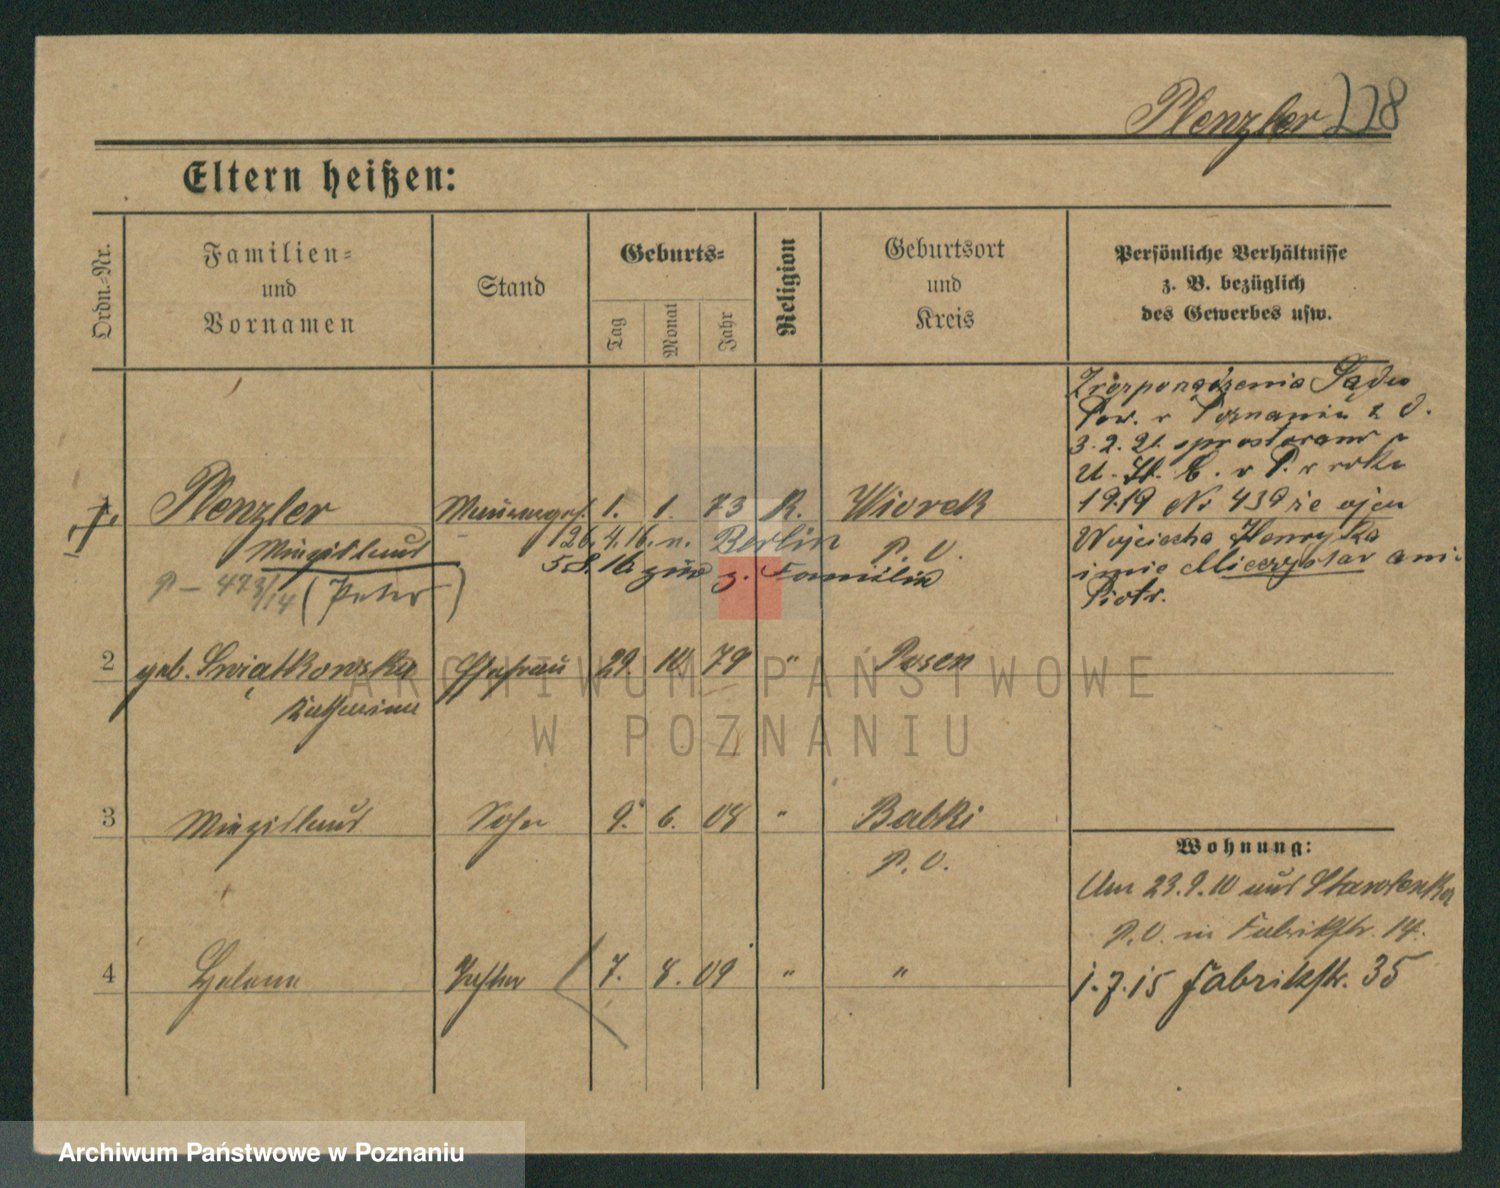 Plenzler 228
Eltern heißen:
Ordn.-Nr.
Familien-
und
Vornamen
Stand
Geburts-
Tag
Monat
Jahr
Religion
Geburtsort
und
Kreis
Persönliche Verhältnisse
z. B. bezüglich
des Gewerbes usw.
Z rozporządzenia Sądu
Pow. w Poznaniu z d.
3.2.21. sprostowano w
U. St. C. w P. w roku
1919 Nr 439 że ojcu
Wojciecha Henryka
imię Mieczysław a nie
Piotr.
1. Plenzler 1. 1. 73 K. Wiorek
Miecislaus 26.4.16. n. Berlin P. O.
5.8.16 zur. z. Familie
P - 473/14 (Peter)
2 geb. Świątkowska Ehefrau 29. 10. 79 " Posen
Katharina
3 Miecislaus Sohn 9. 6. 08 " Babki
P. O.
Wohnung:
Am 23.9.10 aus Starolenka
P.O. in Fabrikstr. 14.
4 Helene Tochter 7. 8. 09 " "
1.7.15 Fabrikstr. 35
ARCHIWUM PAŃSTWOWE
W POZNANIU
Archiwum Państwowe w Poznaniu